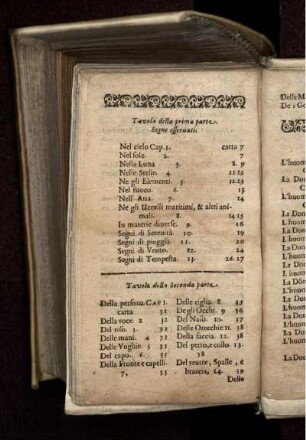 Tavola della prima parte.
Segni osservati.
Nel cielo Cap. 1. carta 7
Nel sole. 2. 7
Nella Luna 3. 8. 9
Nelle Stelle. 4. 11 12
Ne gli Elementi. 5. 12.13
Nel fuoco. 6. 13
Nell' Aria. 7. 14
Ne gli Uccelli maritimi, & altri ani-
mali. 8. 14 15
In materie diverse. 9. 16
Segni di Serenità. 10. 19
Segni di pioggia. 11. 20
Segni di Vento. 12. 24
Segni di Tempesta. 13. 26.27
Tavola della Seconda parte.
Della persona. CAP 1.
carta 31
Della voce. 2 32
Del riso. 3 32
Delle mani. 4 33
Delle Unghie. 5 35
Del capo. 6. 35
Della Fronte e capelli
7, 35
Delle ciglia. 8 35
De gli Occhi. 9 36
Del Naso. 10. 37
Delle Orecchie 11 38
Della faccia. 12. 38
Del petto, e collo 13.
38
Del ventre, Spalle, e
braccia, 14. 39
Delle
Della M
De i Ge
L'huom
La Don
L'huom
La Don
La Don
L'huom
La Don
L'huom
La Don
L'huom
La Don